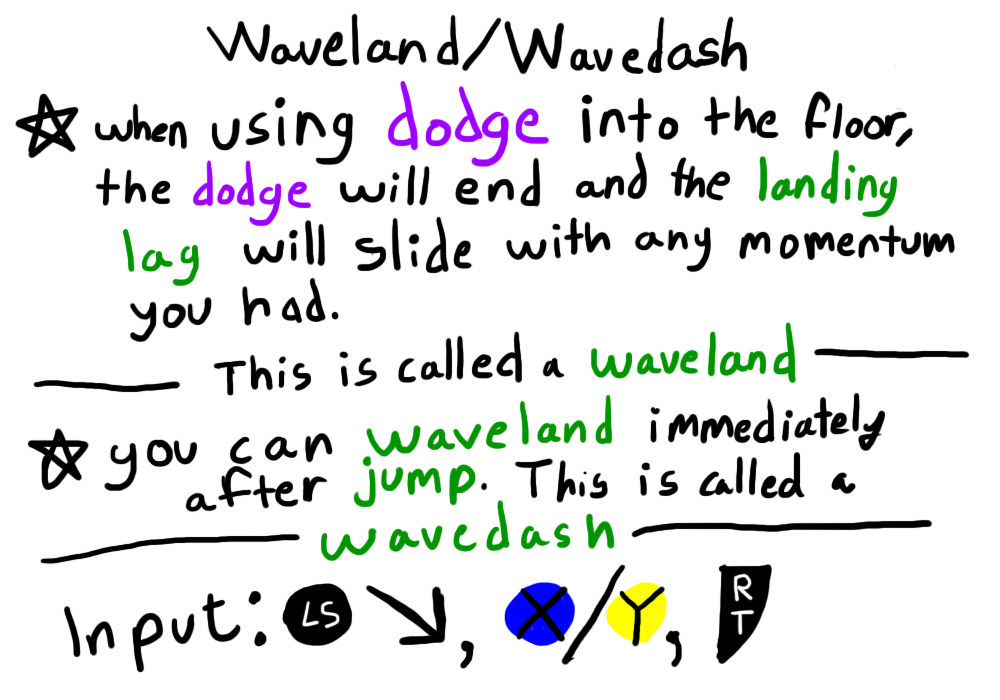 Waveland/Wavedash
when using dodge into the floor,
the dodge will end and the landing
lag will slide with any momentum
you had.
This is called a waveland
you can waveland immediately
after jump. This is called a
wavedash
Input: LS ↘, X/Y, RT